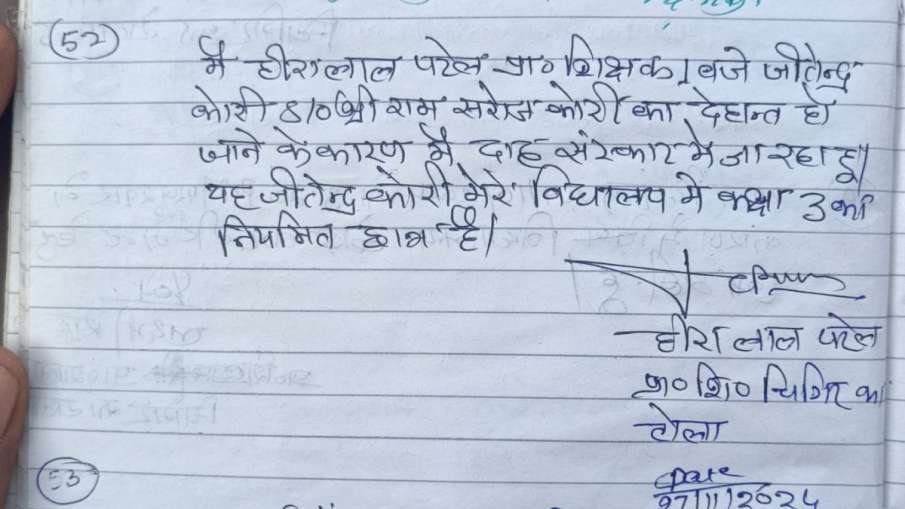 (52)
मै हीरालाल पटेल प्रा० शिक्षक 1 बजे जीतेन्द्र
कोरी S/० श्री राम सरोज कोरी का देहान्त हो
जाने के कारण मै दाह संस्कार मे जा रहा हू।
यह जीतेन्द्र कोरी मेरे विद्यालय मे कक्षा 3 का
नियमित छात्र है।
हीरा लाल पटेल
प्रा० शि०
टोला
(53)
Date
27/11/2024